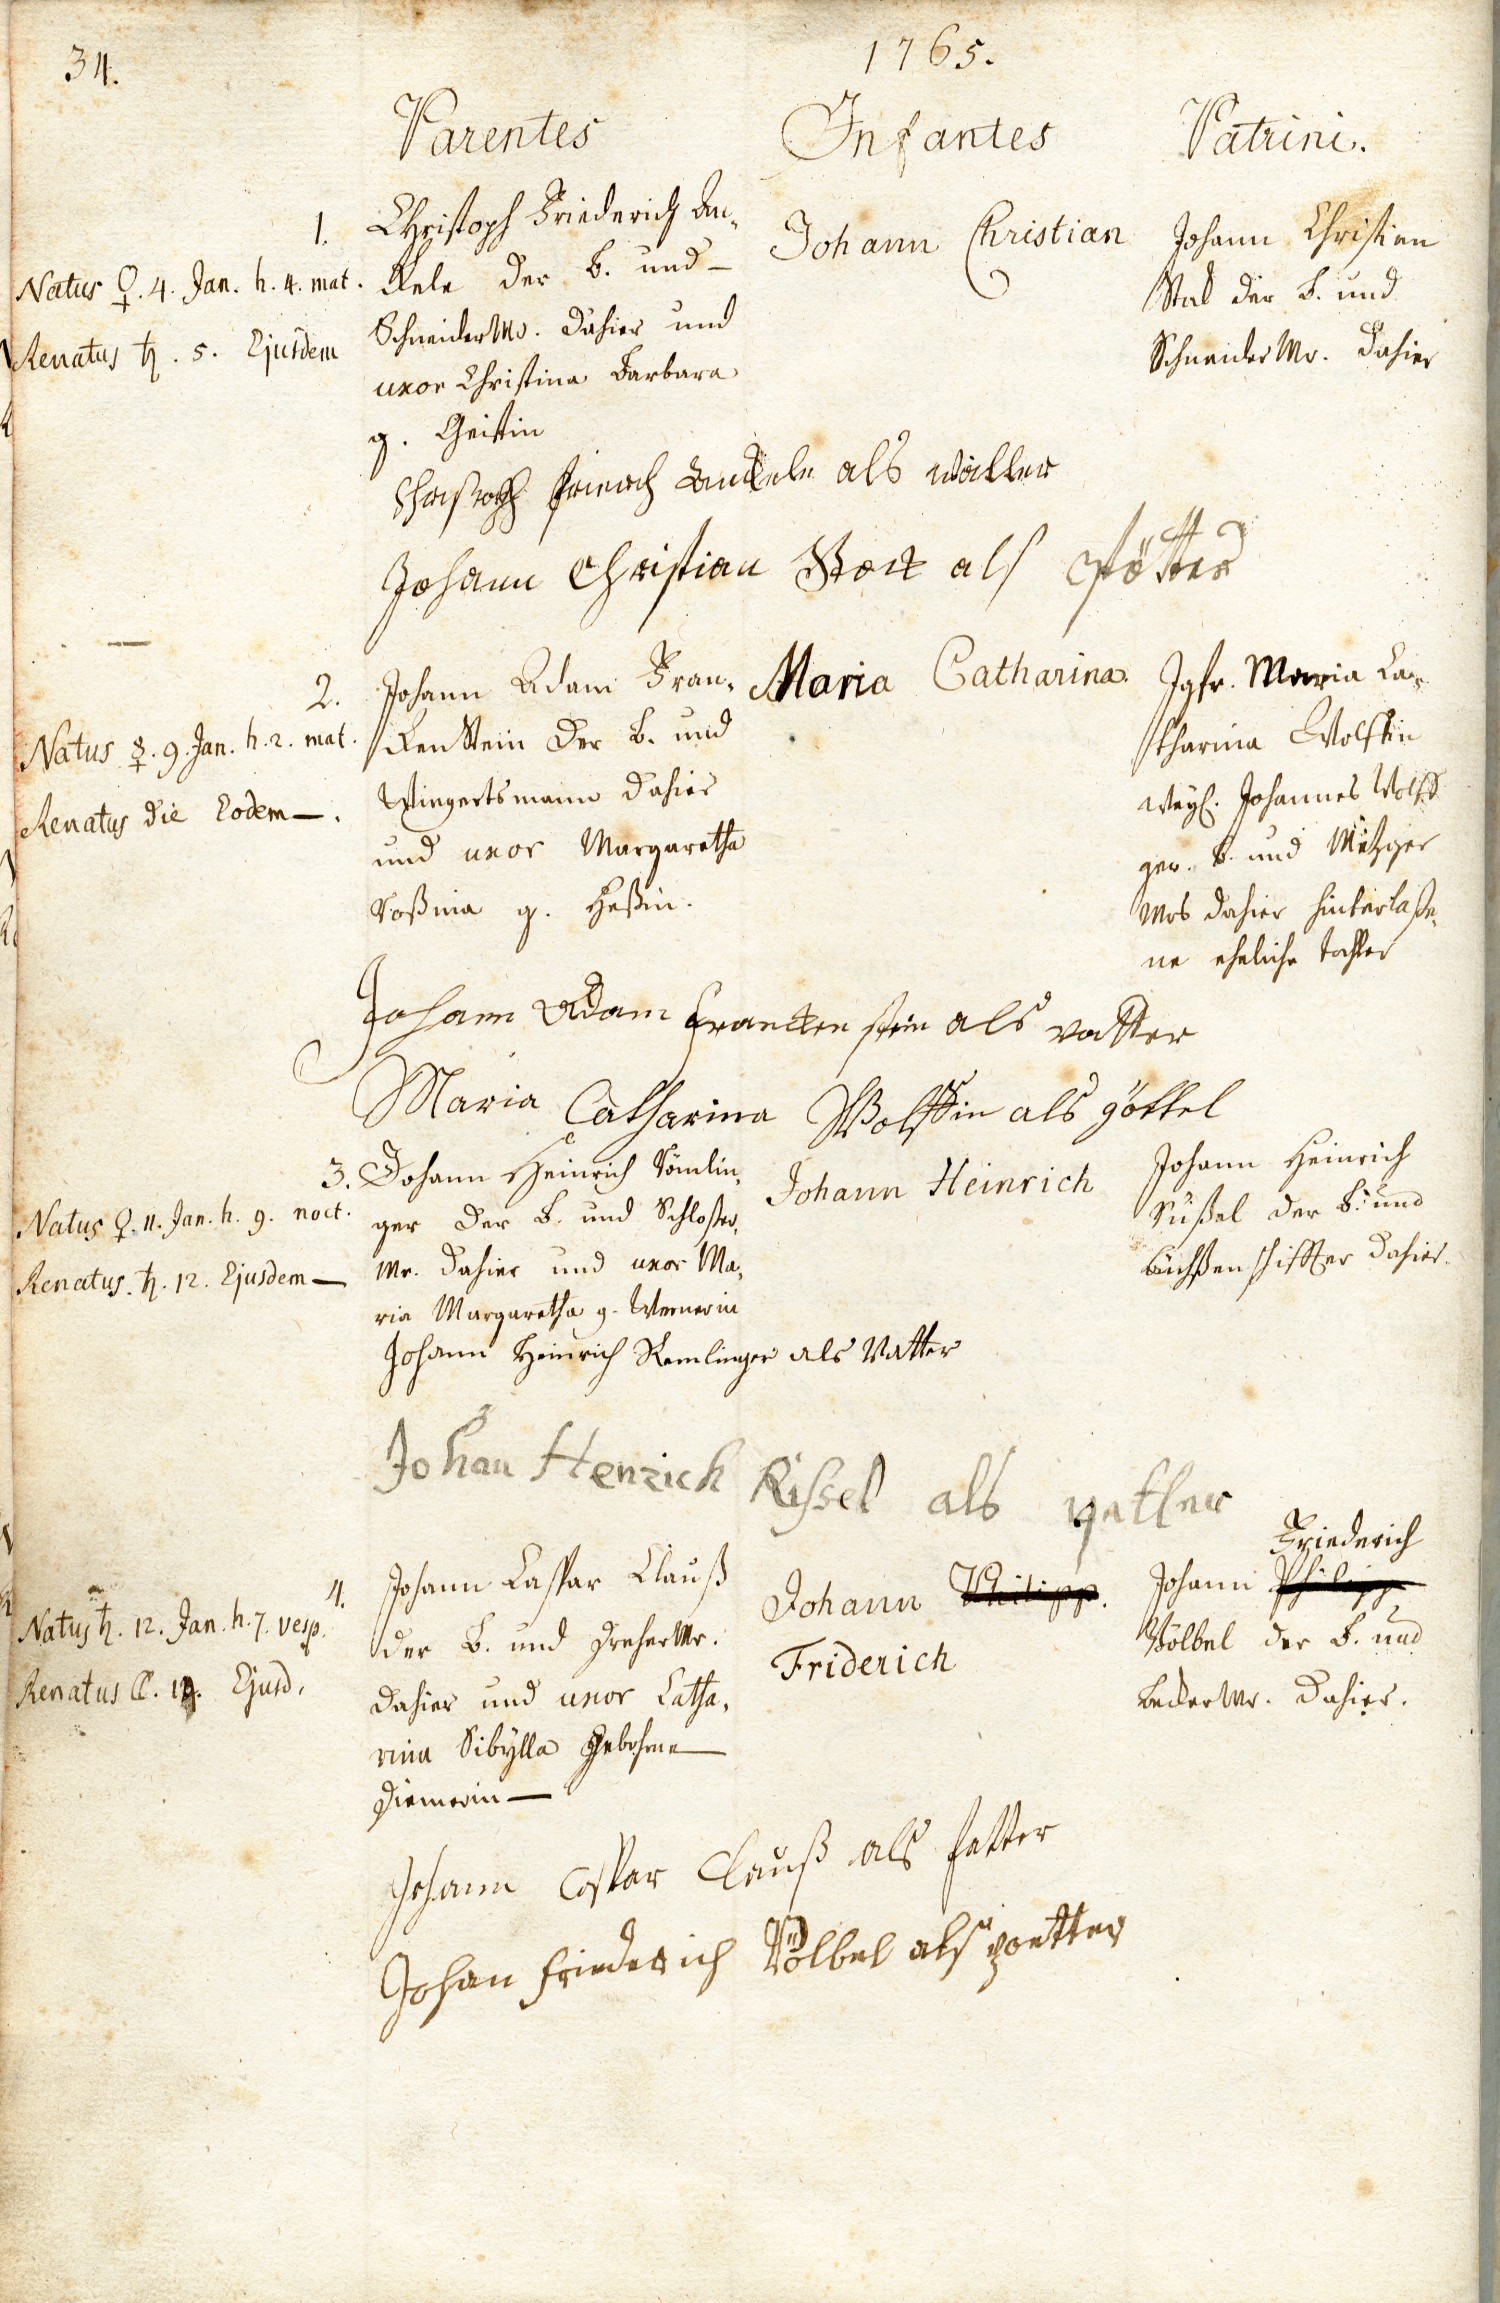 34.
1765.
Parentes Infantes Patrini.
1.
Natus ♀. 4. Jan. h. 4. mat.
Renatus ♄. 5. Ejusdem
Christoph Friederich An-
kele der B. und
Schneider Mr. dahier und
uxor Christina Barbara
g. Geistin
Johann Christian
Johann Christian
der B. und
Schneider Mr. dahier
als
Johann Christian als
2.
Natus ☿. 9. Jan. h. 2. mat.
Renatus die Eodem —.
Johann Adam Fran-
kenstein der B. und
Wingertsmann dahier
und uxor Margaretha
g. Heßin.
Maria Catharina.
Jgfr. Maria Ca-
tharina Wolffin
weyl. Johannes Wolff
gew. B. und Metzger
Mrs dahier hinterlaße-
ne eheliche tochter
Johann Adam Franckenstein als vatter
Maria Catharina Wolffin als göttel
3.
Natus ♀. 11. Jan. h. 9. noct.
Renatus. ♄. 12. Ejusdem —
Johann Heinrich Römlin-
ger der B. und Schloßer-
Mr. dahier und uxor Ma-
ria Margaretha g. Wernerin
Johann Heinrich
Johann Heinrich
Rüßel der B. und
büchsenschiffter dahier.
Johann Heinrich Remlinger als Vatter
Johan Henrich Rissel als petter
4.
Natus ♄. 12. Jan. h. 7. vesp.
Renatus ☾. 14. Ejusd.
Johann Caspar Clauß
der B. und Dreher Mr.
dahier und uxor Catha-
rina Sibylla gebohrne —
Diemerin —
Johann Philipp.
Friderich
Friederich
Johann Philipp
Völbel der B. und
Becker Mr. dahier.
Johann Caspar Clauß als fatter
Johan Friederich Völbel als petter